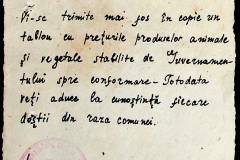 Vi-se trimite mai jos în copie un
tablou cu prețurile produselor animale
și vegetale stabilite de Guvernamen-
tului spre conformare - Totodata
veți aduce la cunoștință fiecare
din raza comunei.